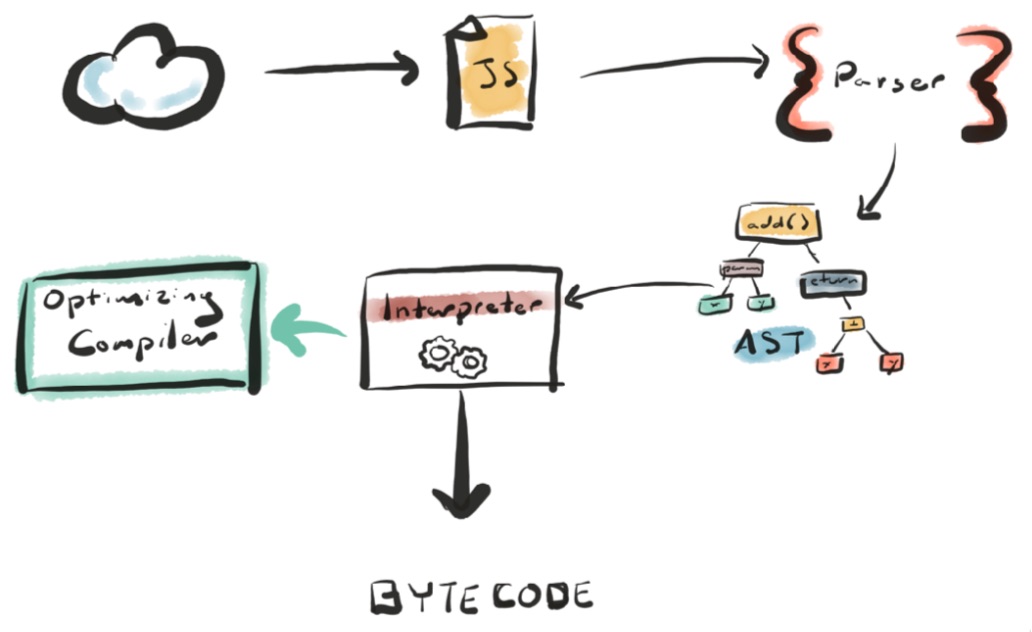 JS
Parser
add()
param
return
x
y
+
x
y
AST
Interpreter
Optimizing
Compiler
BYTECODE